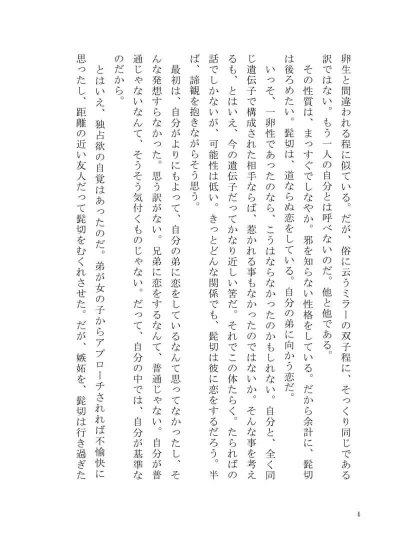 卵生と間違われる程に似ている。だが、俗に云うミラーの双子程に、そっくり同じである
訳ではない。もう一人の自分とは呼べないのだ。他と他である。
その性質は、まっすぐでしなやか。邪を知らない性格をしている。だから余計に、髭切
は後ろめたい。髭切は、道ならぬ恋をしている。自分の弟に向かう恋だ。
いっそ、一卵性であったのなら、こうはならなかったのかもしれない。自分と、全く同
じ遺伝子で構成された相手ならば、惹かれる事もなかったのではないか。そんな事を考え
るも、とはいえ、今の遺伝子だってかなり近しい筈だ。それでこの体たらく。たらればの
話でしかないが、可能性は低い。きっとどんな関係でも、髭切は彼に恋をするだろう。半
ば、諦観を抱きながらそう思う。
最初は、自分がよりにもよって、自分の弟に恋をしているなんて思ってなかったし、そ
んな発想すらなかった。思う訳がない。兄弟に恋をするなんて、普通じゃない。自分が普
通じゃないなんて、そうそう気付くものじゃない。だって、自分の中では、自分が基準な
のだから。
とはいえ、独占欲の自覚はあったのだ。弟が女の子からアプローチされれば不愉快に
思ったし、距離の近い友人だって髭切をむくれさせた。だが、嫉妬を、髭切は行き過ぎた
4